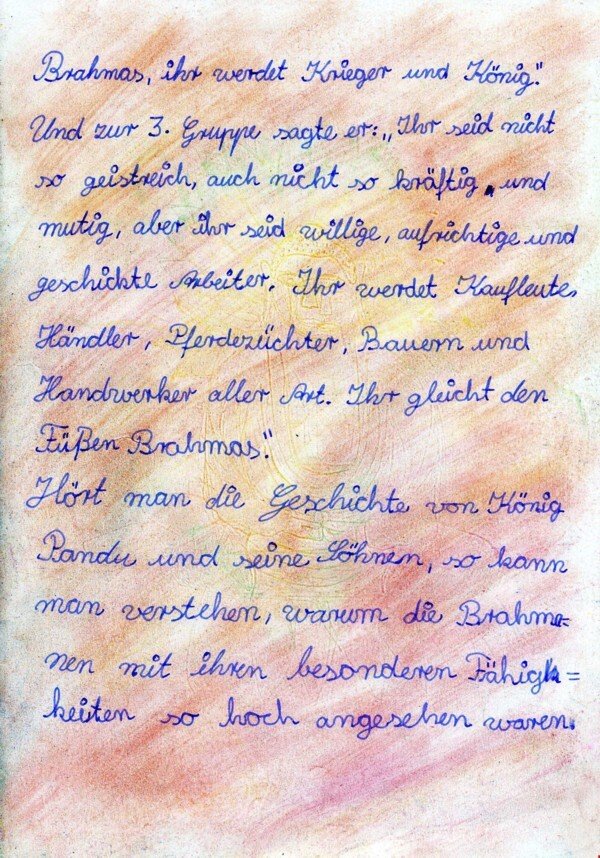 Brahmas, ihr werdet Krieger und König."
Und zur 3. Gruppe sagte er: „Ihr seid nicht
so geistreich, auch nicht so kräftig und
mutig, aber ihr seid willige, aufrichtige und
geschickte Arbeiter. Ihr werdet Kaufleute,
Händler, Pferdezüchter, Bauern und
Handwerker aller Art. Ihr gleicht den
Füßen Brahmas."
Hört man die Geschichte von König
Pandu und seine Söhnen, so kann
man verstehen, warum die Brahma=
nen mit ihren besonderen Fähigk=
keiten so hoch angesehen waren.